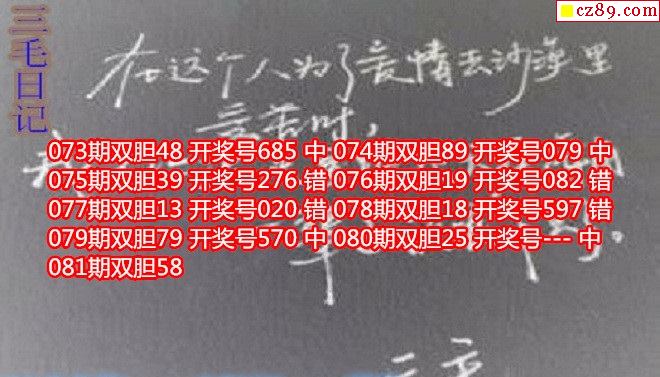 cz89.com
三毛日记
在这个人为了爱情去沙漠里
受苦时,
073期双胆48 开奖号685 中 074期双胆89 开奖号079 中
075期双胆39 开奖号276 错 076期双胆19 开奖号082 错
077期双胆13 开奖号020 错 078期双胆18 开奖号597 错
079期双胆79 开奖号570 中 080期双胆25 开奖号--- 中
081期双胆58
三毛